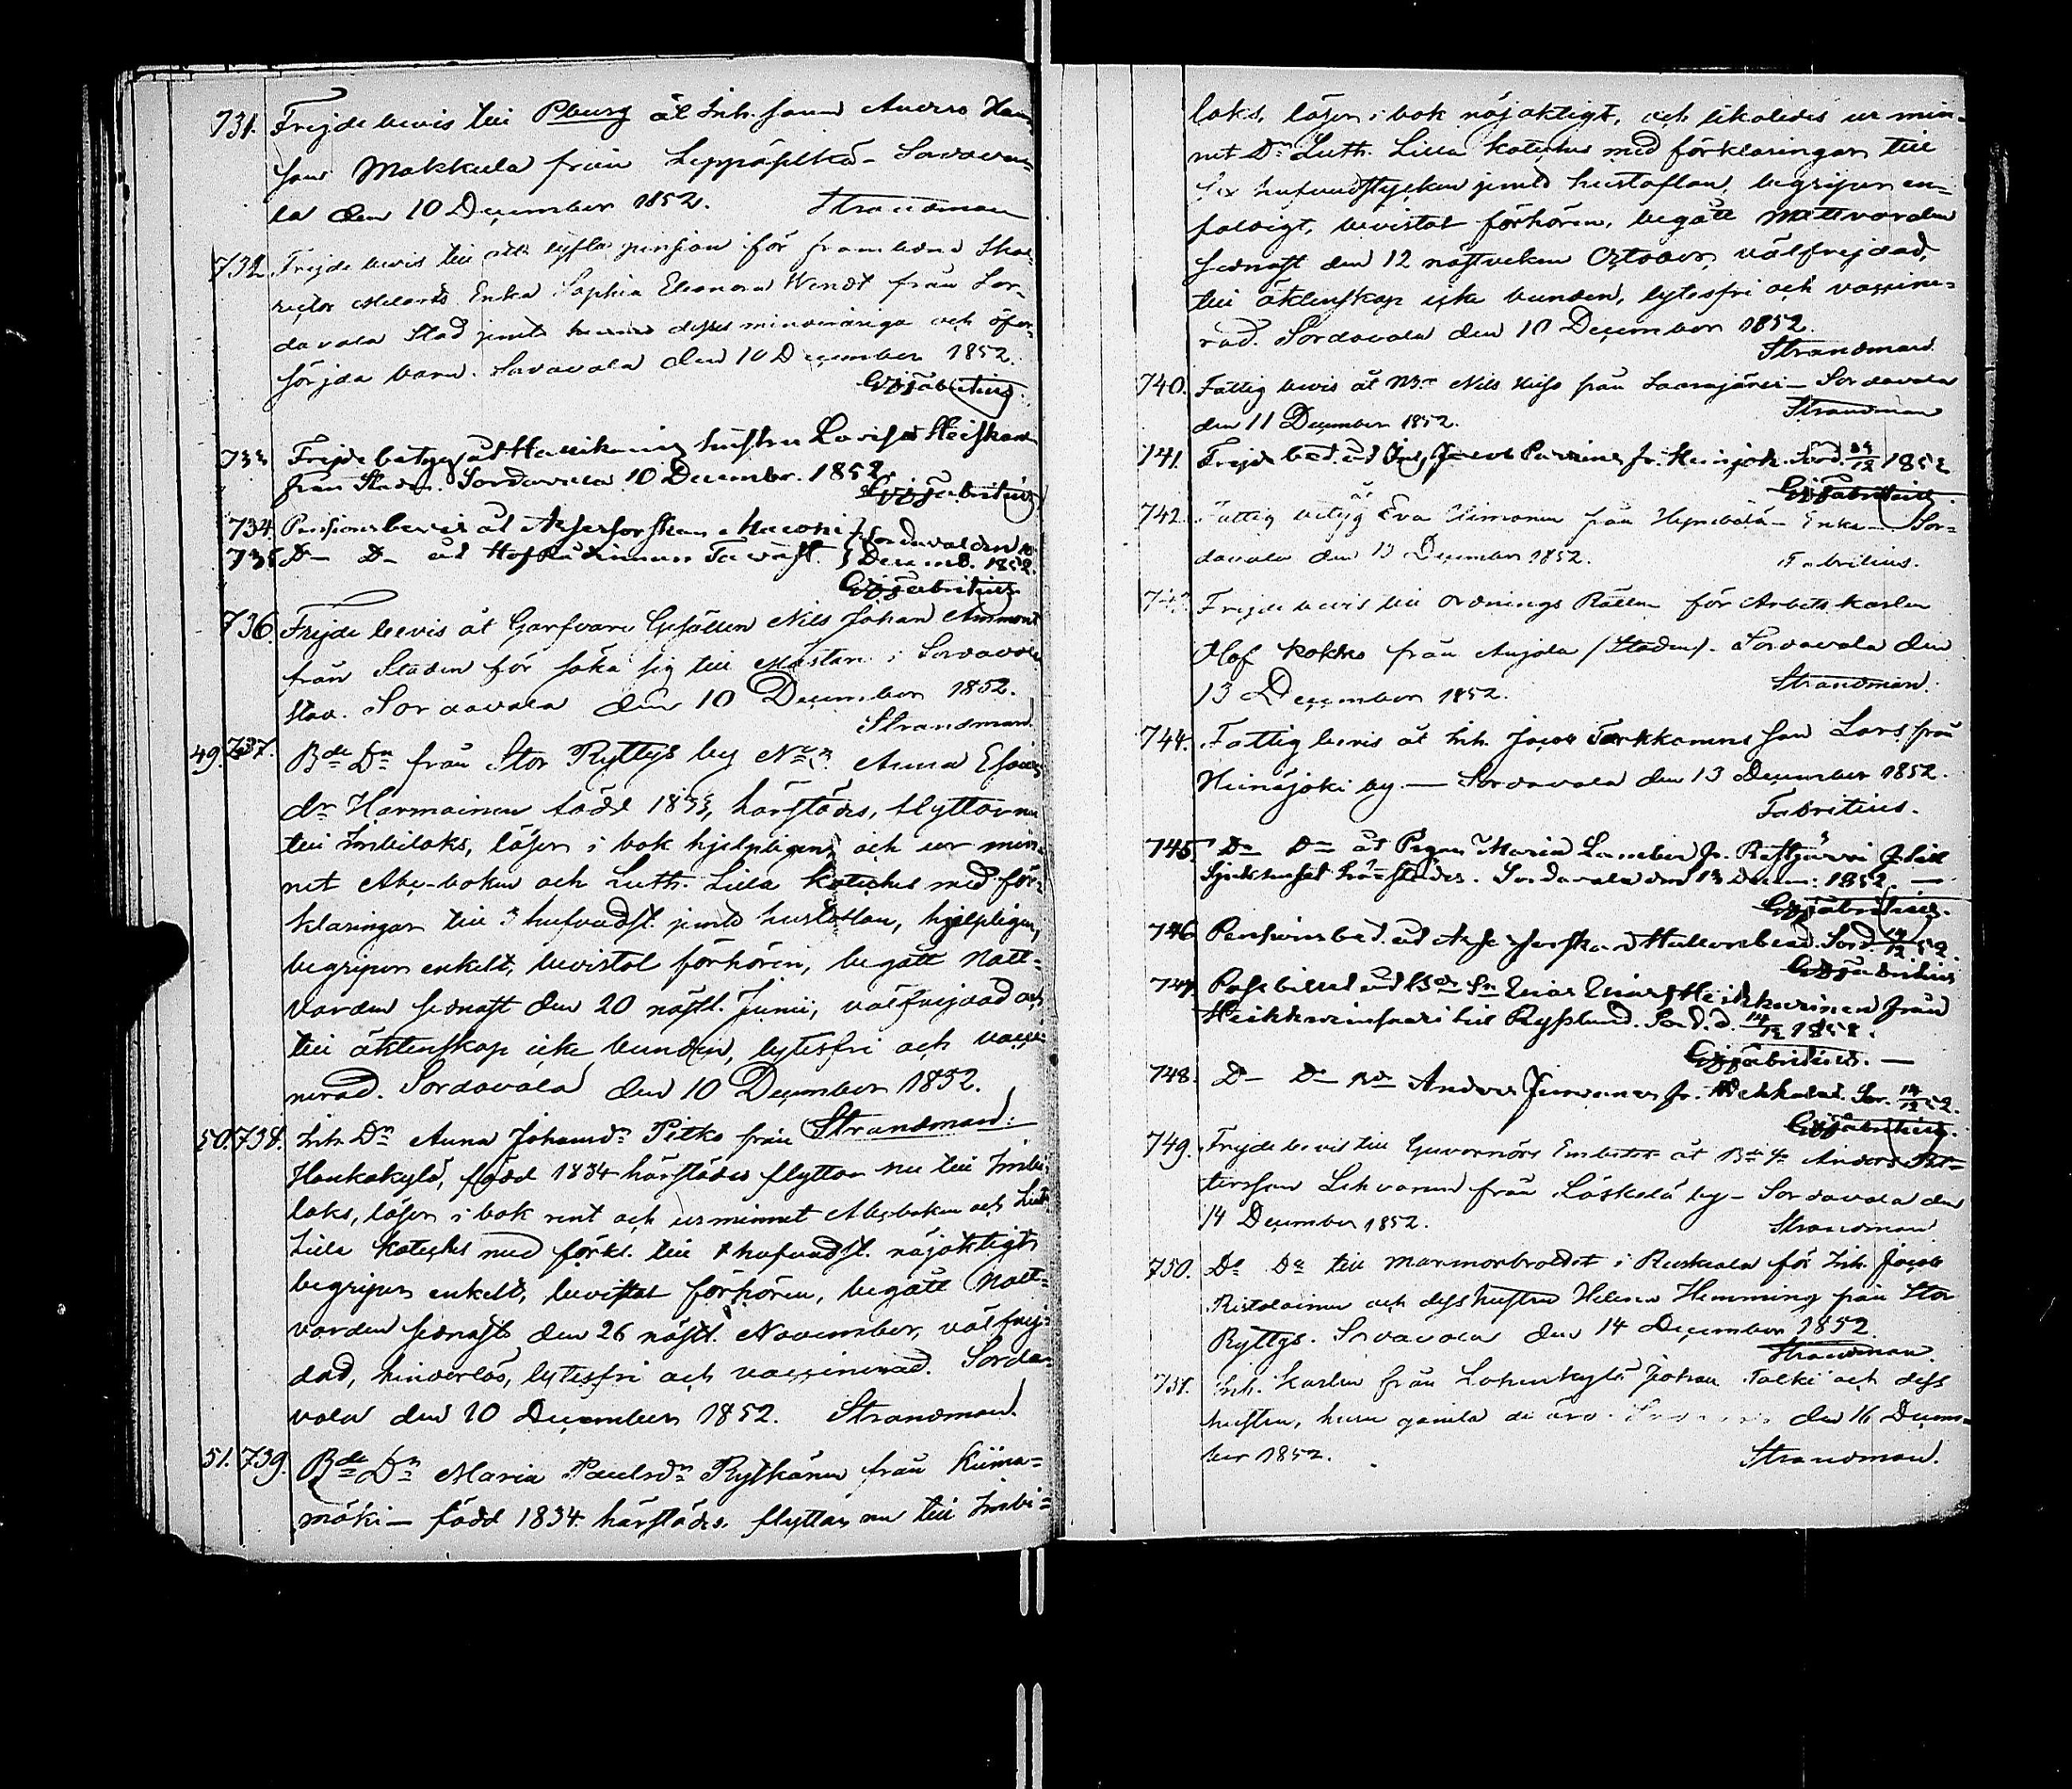 731. Frejdebevis till Pburg åt Inh. Sonen Anders Hans-
son Makkula från Leppäselkä - Sordava-
la den 10 December 1852. Strandman
732. Frejdebevis till att lyfta pension för framledne
rector Melarts Enka Sophia Eleonora Wendt från Sor-
davala Stad jemte hennes dess minderåriga och oför-
sörjda barn. Sordavala den 10 December 1852.
Fabritius
733. Frejdebetyg åt hustru Lovisa
från Staden. Sordavala 10 December. 1852.
Fabritius
734. Pensionsbevis åt Sordavala den 10
735. Do Do åt Decemb. 1852.
Fabritius
736. Frejdebevis åt Garfvare Gesällen Nils Johan Ammont
från Staden för söka sig till Mästare i Sordavala
Stad. Sordavala den 10 December 1852.
Strandman
49. 737. Bde Dn från Stor Ryttys by No 3. Anna Esaias
dr Harmainen född 1833, härstädes, flyttar nu
till Imbilaks, läser i bok hjelpligen och ur min-
net Abc-boken och Luth. Lilla Kateches med för-
klaringar till 3 hufvudst. jemte hustaflan, hjelpligen,
begriper enkelt, bevistat förhören, begått Natt-
varden sednast den 20 nästl. Junii, välfrejdad och
till äktenskap icke bunden, lytesfri och vacci-
nerad. Sordavala den 10 December 1852.
Strandman.
50. 738. Inh. Dn Anna Johansdr Pitko från
Haukakylä, född 1834 härstädes flyttar nu till Imbi-
laks, läser i bok rent och ur minnet Abcboken och Luth.
Lilla Kateches med förkl. till hufvudst. nöjaktigt
begriper enkelt, bevistat förhören, begått Natt-
varden sednast den 26 nästl. November, välfrej-
dad, hinderlös, lytesfri och vaccinerad. Sorda-
vala den 10 December 1852. Strandman.
51. 739. Bde Dn Maria Paulsdr Ryskänen från Kiima-
mäki - född 1834 härstädes, flyttar nu till Imbi-
laks, läser i bok nöjaktigt, och likaledes ur min-
net Dr Luth. Lilla Kateches med förklaringar till
sex hufvudstycken jemte hustaflan, begriper en-
faldigt, bevistat förhören, begått Nattvarden
sednast den 12 nästvekne October, välfrejdad,
till äktenskap icke bunden, lytesfri och vaccine-
rad. Sordavala den 10 December 1852.
Strandman.
740. Fattig bevis åt Bde Nils från - Sordavala
den 11 December 1852. Strandman
741. Frejdebet. åt Inh. Jacob fr. Sord. 1852
Fabritius
742. Fattig betyg åt Eva från - Enka - Sor-
davala den 13 December 1852. Fabritius.
743. Frejdebevis till Ordnings Rätten för Arbets karlen
Olof Kokko från Anjala (Staden). Sordavala den
13 December 1852. Strandman.
744. Fattig bevis åt Inh. Jacob Tarkkanens Son Lars från
Heinäjoki by. - Sordavala den 13 December 1852.
Fabritius.
745. Do Do åt Pigan Maria fr. till
Sjukhuset härstädes. Sordavala den 13 Decem: 1852. -
Fabritius.
746. Pensionsbet. åt Sord. 14/12 52.
Fabritius
747. Passbillet åt Bde Sn från
till Ryssland. Sord. d. 14/12 1852.
Fabritius. -
748. Do Do Bde Anders fr. Sor. 14/12 52.
Fabritius.
749. Frejdebevis till Guvernörs Embetet åt Bde Sn Anders Pet-
tersson Lihvonen från Läskelä by - Sordavala den
14 December 1852. Strandman
750. Do Do till marmorbrottet i Ruskeala för Inh. Jacob
Ristolainen och dess hustru Helena Hemming från Stor
Ryttys. Sordavala den 14 December 1852.
Strandman.
751. Inh. Karlen från Lohenkylä Johan Talki och dess
hustru, huru gamla de äro. den 16 Decem-
ber 1852. Strandman.